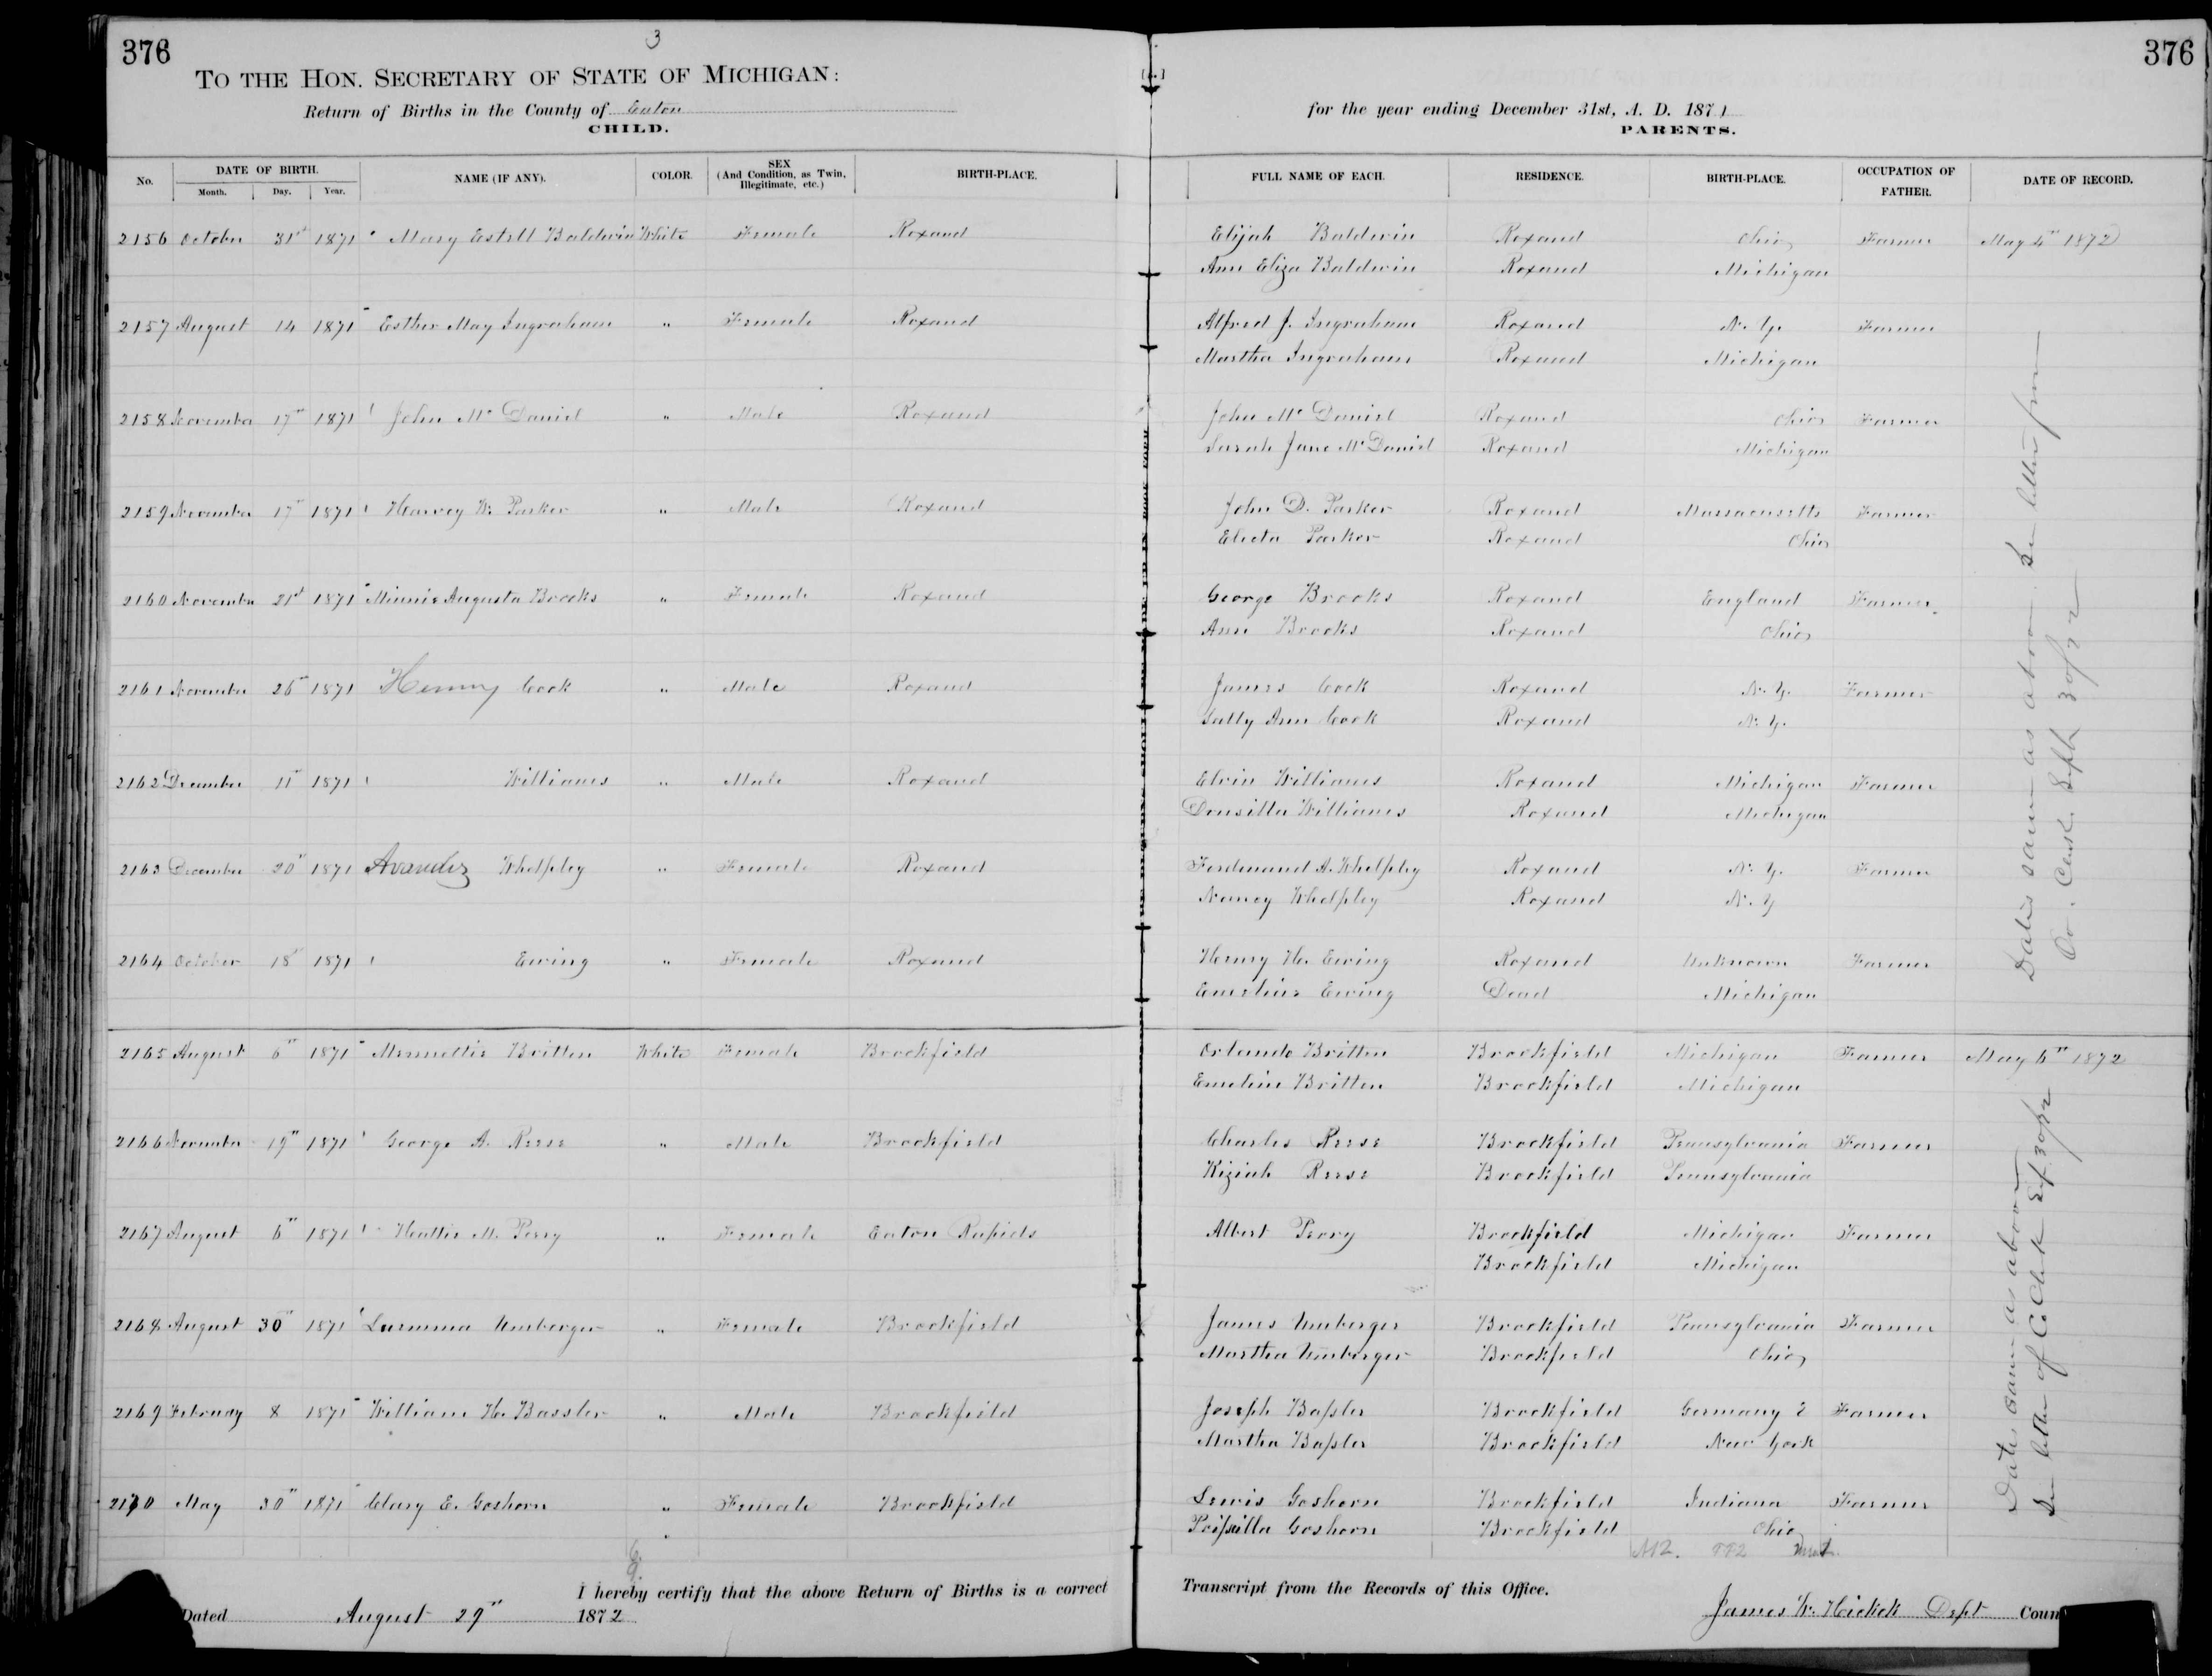 376
3
TO THE HON. SECRETARY OF STATE OF MICHIGAN:
Return of Births in the County of Eaton
CHILD.
for the year ending December 31st, A. D. 1871
PARENTS.
376
No. DATE OF BIRTH. Month. Day. Year. NAME (IF ANY). COLOR. SEX (And Condition, as Twin, Illegitimate, etc.) BIRTH-PLACE. FULL NAME OF EACH. RESIDENCE. BIRTH-PLACE. OCCUPATION OF FATHER. DATE OF RECORD.
2156 October 31st 1871 Mary Estell Baldwin White Female Roxand Elijah Baldwin Roxand Ohio Farmer May 4th 1872
Ann Eliza Baldwin Roxand Michigan
2157 August 14 1871 Esther May Ingraham " Female Roxand Alfred J. Ingraham Roxand N. Y. Farmer
Martha Ingraham Roxand Michigan
2158 November 17th 1871 John Mc Daniel " Male Roxand John Mc Daniel Roxand Ohio Farmer
Sarah Jane Mc Daniel Roxand Michigan
2159 November 17th 1871 Harvey W. Parker " Male Roxand John D. Parker Roxand Massacusetts Farmer
Electa Parker Roxand Ohio
2160 November 21st 1871 Minnie Augusta Brooks " Female Roxand George Brooks Roxand England Farmer
Ann Brooks Roxand Ohio
2161 November 26th 1871 Henny Cook " Male Roxand James Cook Roxand N. Y. Farmer
Sally Ann Cook Roxand N. Y.
2162 December 11th 1871 Williams " Male Roxand Elvin Williams Roxand Michigan Farmer
Donsilla Williams Roxand Michigan
2163 December 20th 1871 Whelpley " Female Roxand Ferdinand A. Whelpley Roxand N. Y. Farmer
Nancy Whelpley Roxand N. Y
2164 October 18th 1871 Ewing " Female Roxand Henry H. Ewing Roxand Unknown Farmer
Emeline Ewing Dead Michigan
Dates same as above See letter from
Co. Clerk. Sept. 30/72
2165 August 6th 1871 Menmettie Britten White Female Brookfield Orlando Britten Brookfield Michigan Farmer May 6th 1872
Emeline Britten Brookfield Michigan
2166 November 19th 1871 George A. Reese " Male Brookfield Charles Reese Brookfield Pennsylvania Farmer
Kiziah Reese Brookfield Pennsylvania
2167 August 6th 1871 Hattie M. Perry " Female Eaton Rapids Albert Perry Brookfield Michigan Farmer
Brookfield Michigan
2168 August 30th 1871 Umberger " Female Brookfield James Umberger Brookfield Pennsylvania Farmer
Martha Umberger Brookfield Ohio
2169 February 8 1871 William H. Bassler " Male Brookfield Joseph Bassler Brookfield Germany ? Farmer
Martha Bassler Brookfield New York
2170 May 30th 1871 Clary E. Goshorn " Female Brookfield Lewis Goshorn Brookfield Indiana Farmer
" Goshorn Brookfield Ohio
Dates same as above
See letter of Co Clerk Sept. 30/72
6.
9.
I hereby certify that the above Return of Births is a correct Transcript from the Records of this Office.
Dated August 29th 1872
James W. Hickok Dept Coun